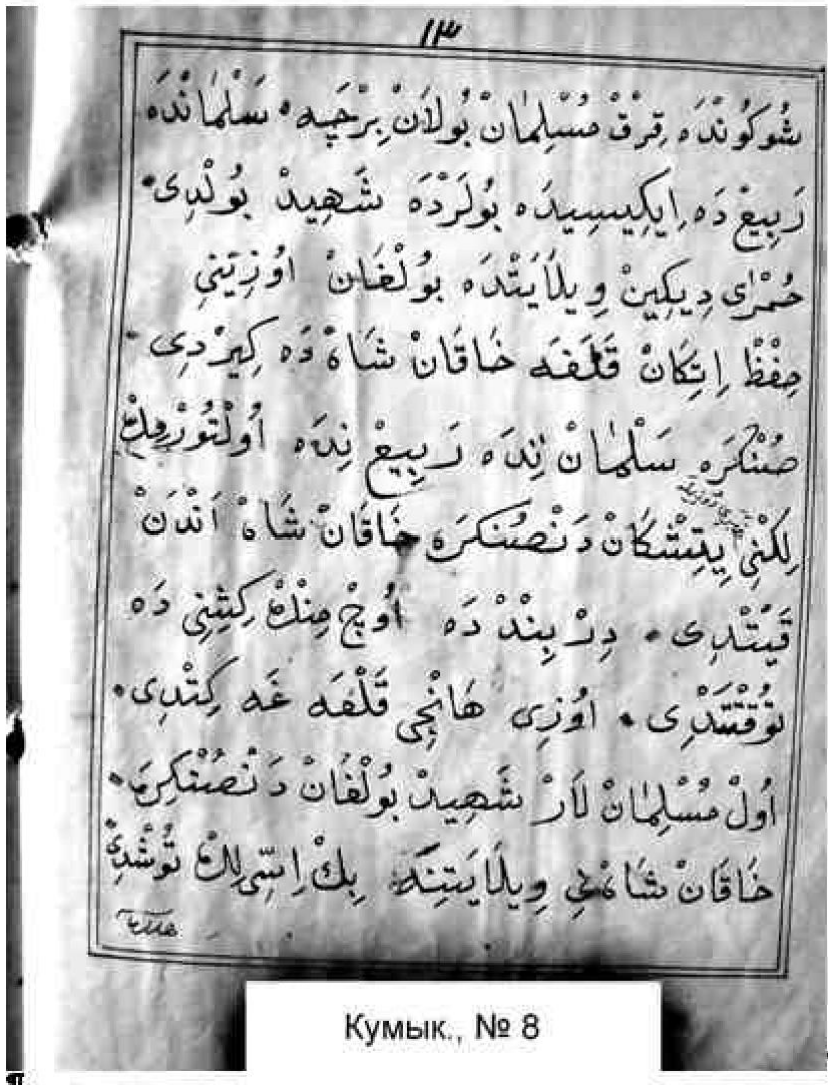 ١٣
شُوكَوُنْدَه قِرْقْ مُسْلِمٰانْ بُولَانْ بِرْجَپه سَلْمٰانْدَه
رَبِيعْ دَه اِيكِيسِيدَه بُولَرْدَه شَهِيدْ بُولْدِى
حُمْرَاى دِيكِينْ وِيلَايَتْدَه بُولْغَانْ اوُزِيتِنِى
حِفْظْ اِتِكَانْ قَلَفَه خَاقَانْ شَاهْ دَه كِيرْدِى
صُنْكرَه سَلْمٰانْ نِدَه رَبِيعْ نِدَه اُولْتُورْمِكْ
لِكْنِى يِتِشْكَانْ دَنْصُنكرَه خَاقَانْ شَاهْ اَنْدَنْ
قَيْتْدِى دِرْبِنْدْ دَه اُوچْ مِنْكْ كِشِنِى دَه
تُوقْتَتْدِى اوُزِى هَانْجِى قَلْفَه غَه كِتْدِى
اُولْ مُسْلِمٰانْ لَارْ شَهِيدْ بُولْغَانْ دَنْصُنْكِرَه
خَاقَانْ شَاهْنِى وِيلَايَتِنِكَه بِكْ اِسِّى لِكْ تُوشْدِى
Кумык., № 8